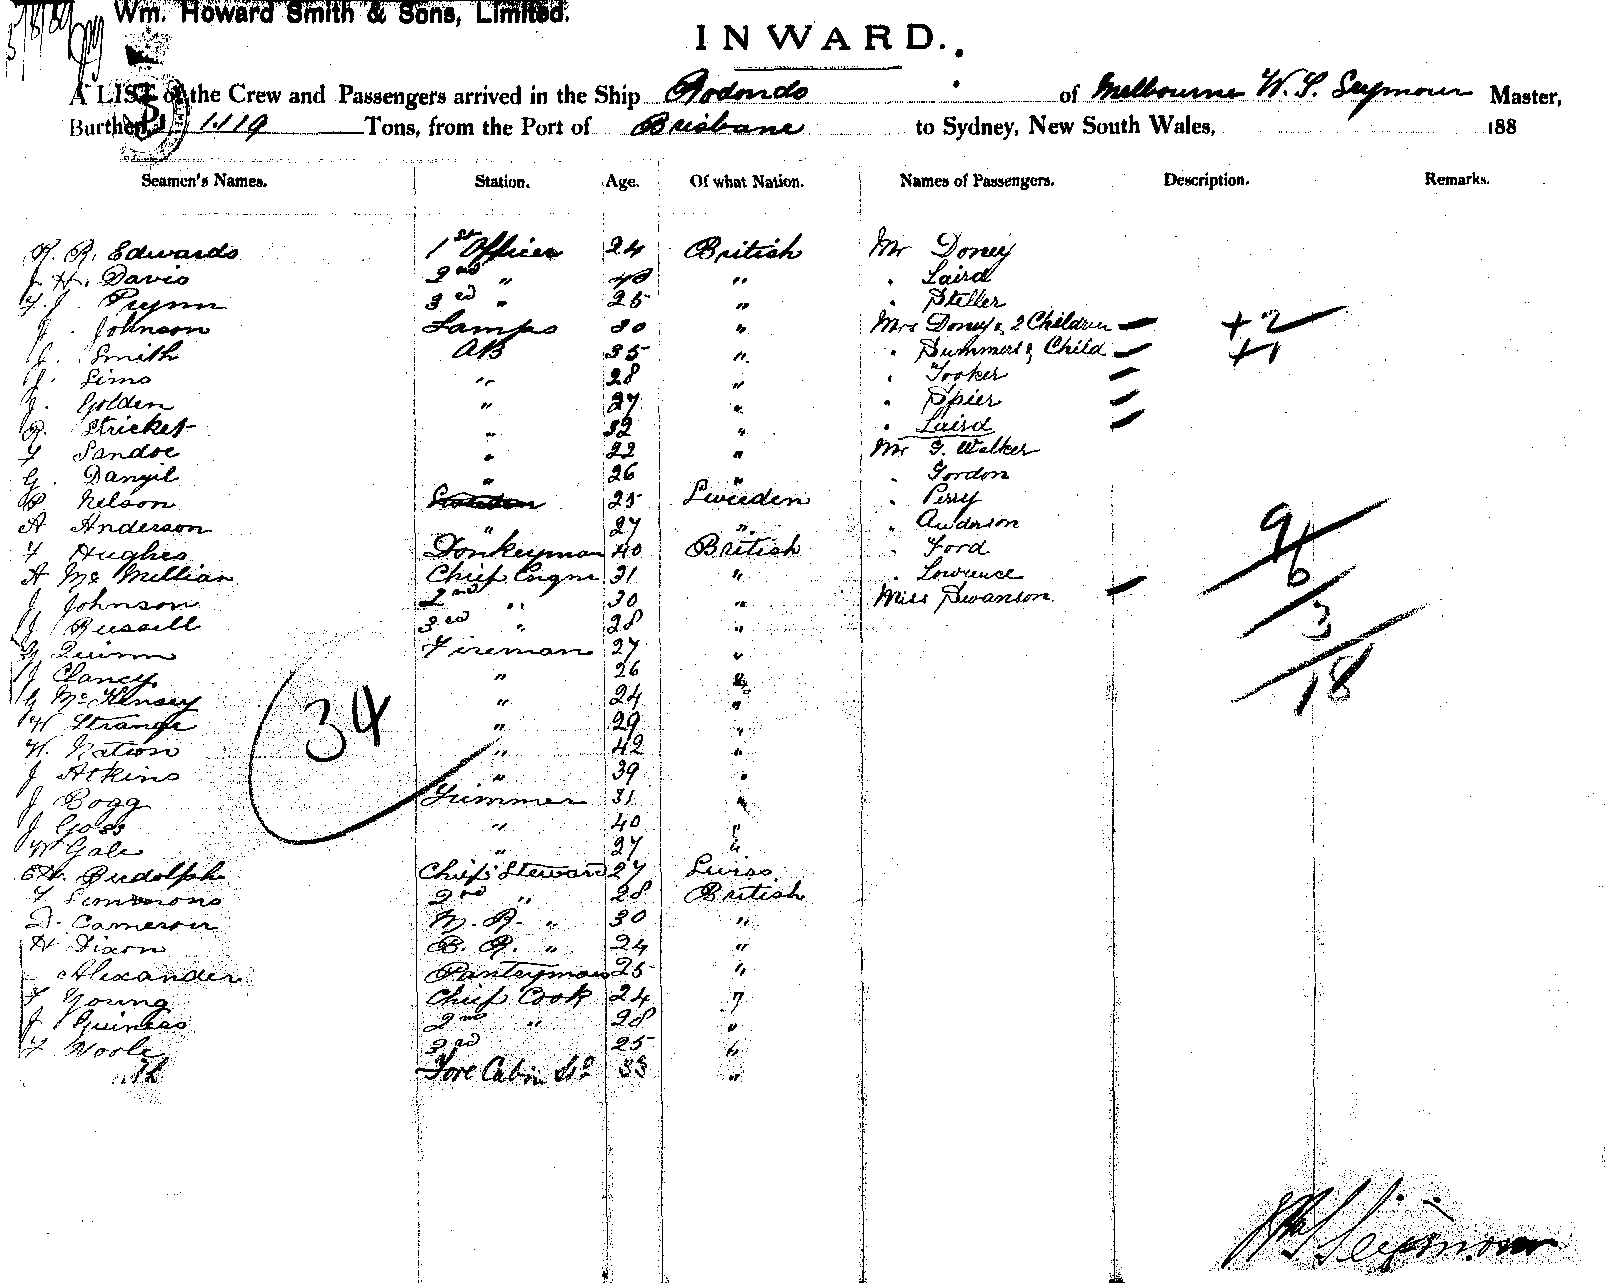 5/8/89
Wm. Howard Smith & Sons, Limited.
INWARD.
A LIST of the Crew and Passengers arrived in the Ship Rodondo of Melbourne W. S. Seymour Master,
Burthen 1119 Tons, from the Port of Brisbane to Sydney, New South Wales, 188
Seamen's Names. Station. Age. Of what Nation. Names of Passengers. Description. Remarks.
Edwards 1st Officer 24 British Mr Doney
J. H. Davis 2nd " 40 " " Laird
Prynn 3rd " 25 " " Steller
J. Johnson Lamps 30 " Mrs Doney & 2 Children — +2
Smith AB 35 " " Summers & Child — +1
J. Sims " 28 " " Tooker —
J. Golden " 27 " " Spier —
Stricket " 32 " " Laird —
Sandoe " 22 " Mr G. Walker
G. Danyil " 26 " " Gordon
Nelson 25 Sweeden " Perry
A Anderson " 27 " " Anderson
Hughes Donkeyman 40 British " Ford
A Mc Millian Chief Engnr 31 " " Lowrence
J Johnson 2nd " 30 " Miss Swanson —
J Russell 3rd " 28 "
Quinn Fireman 27 "
J Clancy " 26 "
McKensey " 24 "
W Strange " 29 "
W. Nation " 42 "
J Atkins " 39 "
J Bogg Trimmer 31 "
J Goss " 40 "
W Gale " 27 "
Rudolph Chief Steward 27 Swiss
Simmons 2nd " 28 British
D. Cameron M. R. " 30 "
H Dixon B. R. " 24 "
Alexander Panteyman 25 "
Young Chief Cook 24 "
J Guiness 2nd " 28 "
Woole 3rd 25 "
Fore Cabin Sd 33 "
34
9
6
3
18
Wm S Seymour